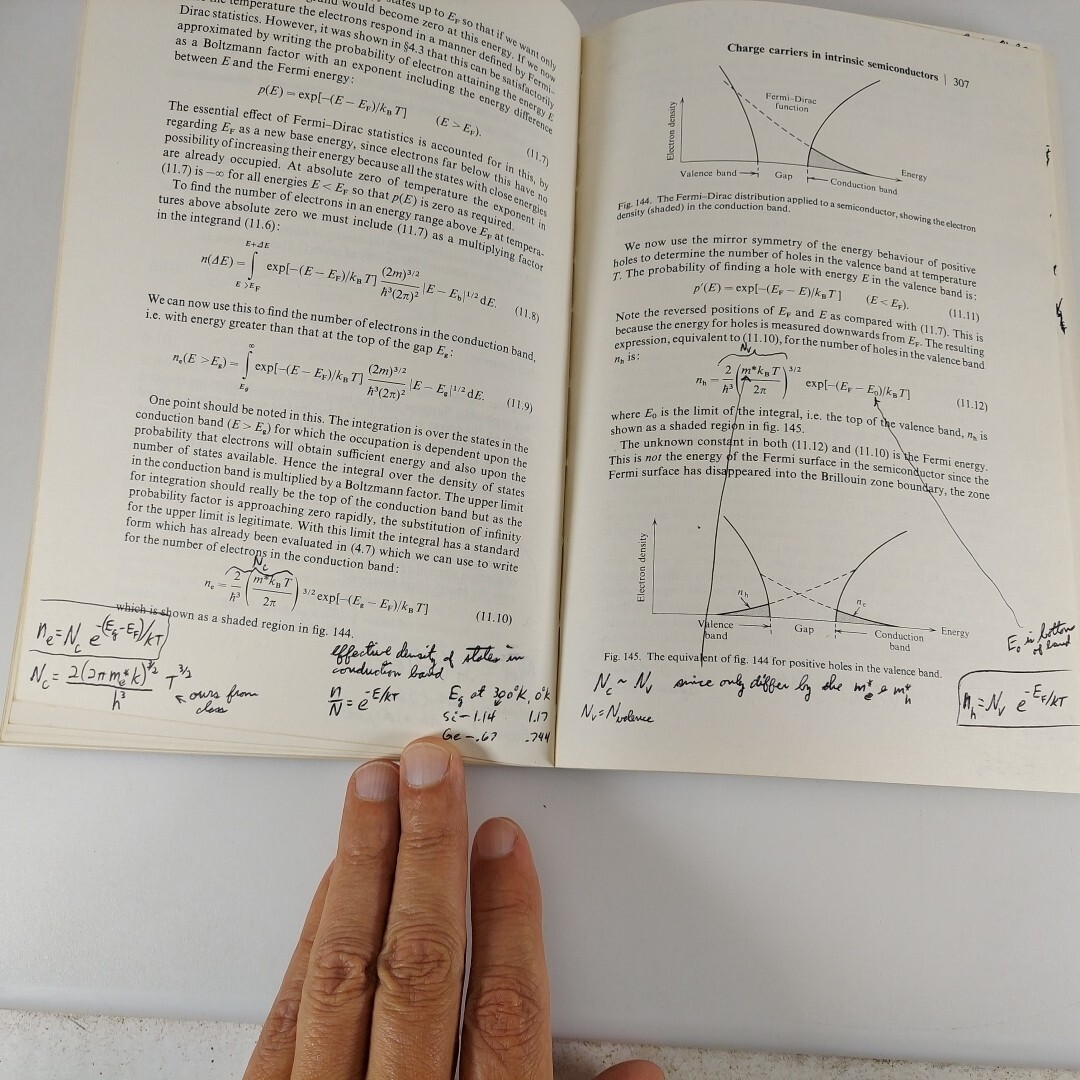 states up to E_F so that if we want only
would become zero at this energy. If we now
temperature the electrons respond in a manner defined by Fermi–
Dirac statistics. However, it was shown in §4.3 that this can be satisfactorily
approximated by writing the probability of electron attaining the energy E
as a Boltzmann factor with an exponent including the energy difference
between E and the Fermi energy:
p(E) = exp[−(E − E_F)/k_B T] (E > E_F). (11.7)
The essential effect of Fermi–Dirac statistics is accounted for in this, by
regarding E_F as a new base energy, since electrons far below this have no
possibility of increasing their energy because all the states with close energies
are already occupied. At absolute zero of temperature the exponent in
(11.7) is −∞ for all energies E < E_F so that p(E) is zero as required.
To find the number of electrons in an energy range above E_F at tempera-
tures above absolute zero we must include (11.7) as a multiplying factor
in the integrand (11.6):
n(ΔE) = ∫_{E>E_F}^{E+ΔE} exp[−(E − E_F)/k_B T] (2m)^{3/2}/ħ³(2π)² |E − E_b|^{1/2} dE. (11.8)
We can now use this to find the number of electrons in the conduction band,
i.e. with energy greater than that at the top of the gap E_g:
n_e(E > E_g) = ∫_{E_g}^{∞} exp[−(E − E_F)/k_B T] (2m)^{3/2}/ħ³(2π)² |E − E_g|^{1/2} dE. (11.9)
One point should be noted in this. The integration is over the states in the
conduction band (E > E_g) for which the occupation is dependent upon the
probability that electrons will obtain sufficient energy and also upon the
number of states available. Hence the integral over the density of states
in the conduction band is multiplied by a Boltzmann factor. The upper limit
for integration should really be the top of the conduction band but as the
probability factor is approaching zero rapidly, the substitution of infinity
for the upper limit is legitimate. With this limit the integral has a standard
form which has already been evaluated in (4.7) which we can use to write
for the number of electrons in the conduction band:
N_c
n_e = 2/ħ³ (m*k_B T/2π)^{3/2} exp[−(E_g − E_F)/k_B T] (11.10)
which is shown as a shaded region in fig. 144.
n_e = N_c e^{-(E_g-E_F)/kT}
N_c = 2(2π m_e* k)^{3/2}/h³ T^{3/2}
← ours from
class
effective density of states in
conduction band
n/N = e^{-E/kT}
E_g at 300°K, 0°K
Si – 1.14 1.17
Ge – .67 .744
Charge carriers in intrinsic semiconductors | 307
Electron density
Fermi–Dirac
function
Valence band
Gap
Conduction band
Energy
Fig. 144. The Fermi–Dirac distribution applied to a semiconductor, showing the electron
density (shaded) in the conduction band.
We now use the mirror symmetry of the energy behaviour of positive
holes to determine the number of holes in the valence band at temperature
T. The probability of finding a hole with energy E in the valence band is:
p′(E) = exp[−(E_F − E)/k_B T] (E < E_F). (11.11)
Note the reversed positions of E_F and E as compared with (11.7). This is
because the energy for holes is measured downwards from E_F. The resulting
expression, equivalent to (11.10), for the number of holes in the valence band
n_h is:
N_v
n_h = 2/ħ³ (m*k_B T/2π)^{3/2} exp[−(E_F − E_0)/k_B T] (11.12)
where E_0 is the limit of the integral, i.e. the top of the valence band, n_h is
shown as a shaded region in fig. 145.
The unknown constant in both (11.12) and (11.10) is the Fermi energy.
This is not the energy of the Fermi surface in the semiconductor since the
Fermi surface has disappeared into the Brillouin zone boundary, the zone
Electron density
n_h
n_e
Valence
band
Gap
Conduction
band
Energy
E_0 is bottom
of band
Fig. 145. The equivalent of fig. 144 for positive holes in the valence band.
N_c ~ N_v since only differ by the m_e* & m_h*
N_v = N_valence
n_h = N_v e^{-E_F/kT}